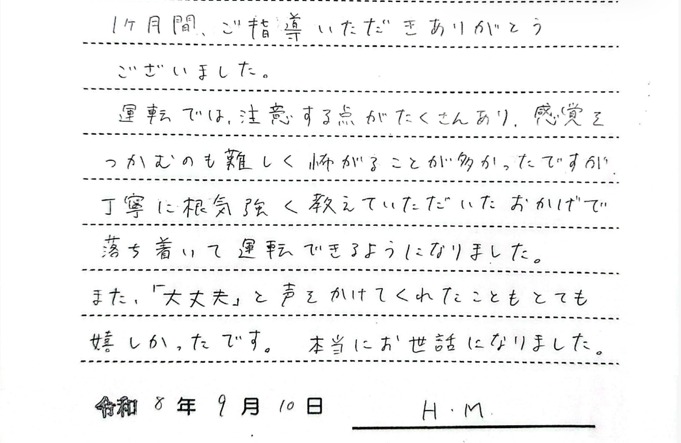 1ヶ月間、ご指導いただきありがとう
ございました。
運転では、注意する点がたくさんあり、感覚を
つかむのも難しく怖がることが多かったですが
丁寧に根気強く教えていただいたおかげで
落ち着いて運転できるようになりました。
また、「大丈夫」と声をかけてくれたこともとても
嬉しかったです。 本当にお世話になりました。
令和 8 年 9 月 10 日 H.M.